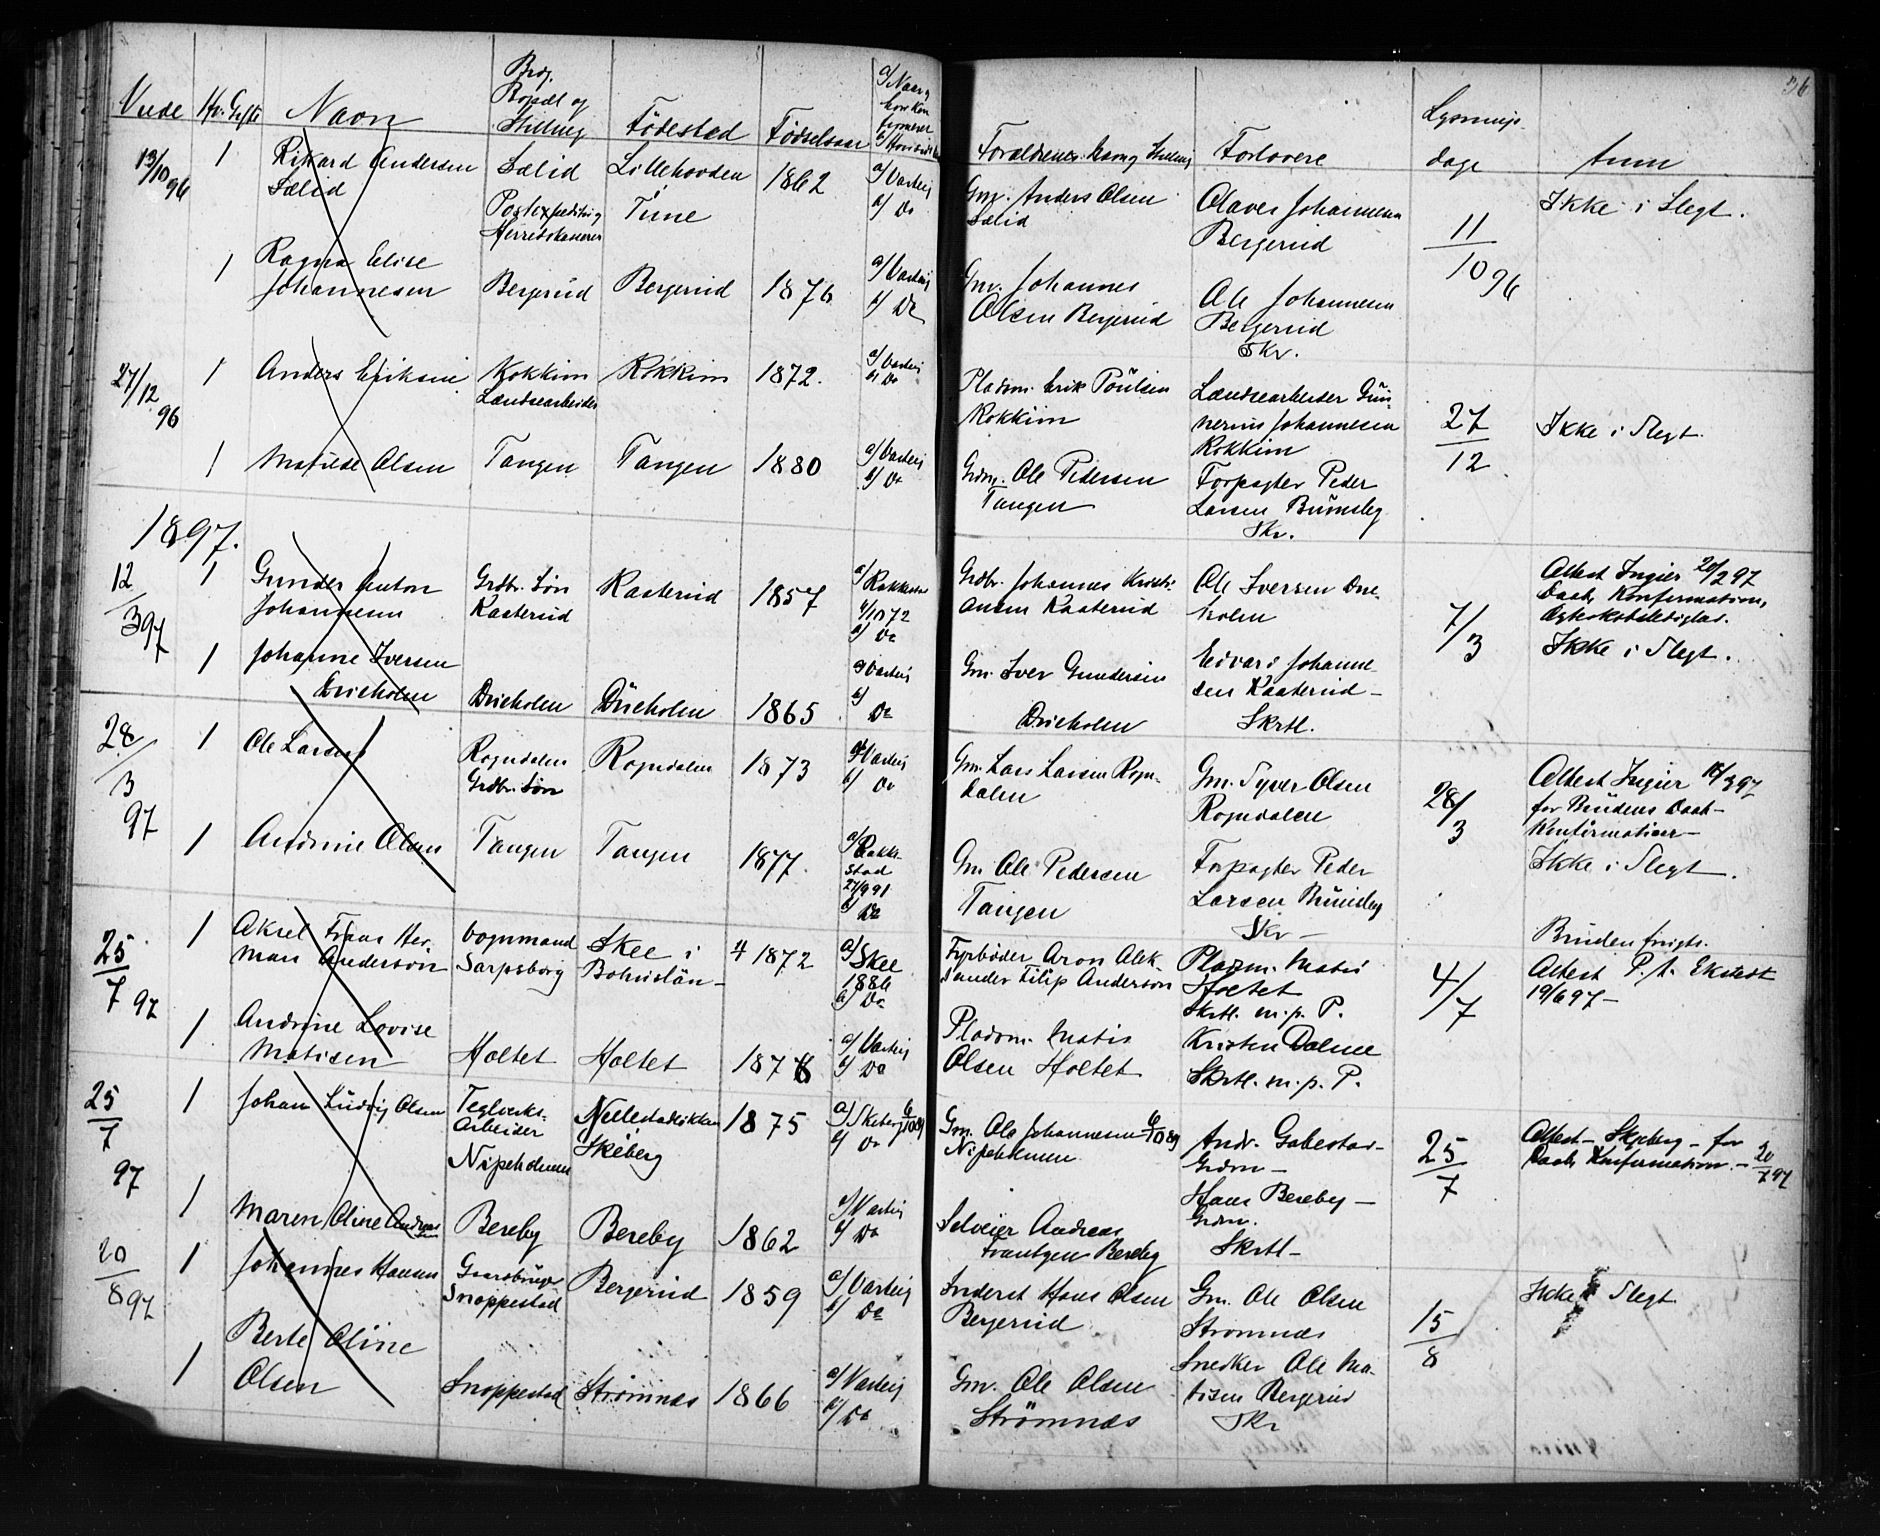 36
Viede Hv. Gifte Navn
Bopæl og
Stilling
Födestad Födselsaar
Forældrenes Navn, Stilling
Forlovere
Lysnings
dage
Anm
13/10 96 1 Rikard Andersen
Sælid
Sælid
Postexpeditör
Herredskasserer
Lillehovden
Tune
1862
a/ Varteig
b/ Do
Gm. Anders Olsen
Sælid
Olaves Johannesen
Bergerud
11/10 96
Ikke i Slegt.
1 Ragna Elise
Johannesen
Bergerud Bergerud 1876
a/ Varteig
b/ Do
Gm. Johannes
Olsen Bergerud
Ole Johannesen
Bergerud
Skr.
27/12 96 1 Anders Eriksen
Kokkim
Landsearbeider
Kokkim 1872.
a/ Varteig
b/ Do
Pladsm. Erik Poulsen
Kokkim
Landsearbeider Gun-
nerius Johannesen
Kokkim
27/12
Ikke i Slegt.
1 Matilde Olsen Tangen Tangen 1880
a/ Varteig
b/ Do
Grdm. Ole Pedersen
Tangen
Forpagter Peder
Larsen Brunsby
Skr.
1897.
12/3 97 1 Gunder Anton
Johannesen
Grdbr. Sön
Kaaterud
Kaaterud 1857
a/ Rakkestad
4/10 72
b/ Do
Grdbr. Johannes Kristi-
ansen Kaaterud
Ole Iversen Drie
holen
7/3
Attest Ingier 20/2 97
Daab, Konfirmation,
Ægteskabsledighed.
Ikke i Slegt.
1 Johanne Iversen
Drieholen
Drieholen Drieholen 1865
a/ Varteig
b/ Do
Gm. Iver Gundersen
Drieholen
Edvard Johanne-
sen Kaaterud -
Skrtl.
28/3 97 1 Ole Larsen
Rogndalen
Grdbr. Sön
Rogndalen 1873
a/ Varteig
b/ Do
Gm. Lars Larsen Rogn-
dalen
Gm. Syver Olsen
Rogndalen
28/3
Attest Ingier 18/3 97
for Brudens Daab -
Konfirmation -
Ikke i Slegt.
1 Andrine Olsen Tangen Tangen 1877.
a/ Rakke-
stad
27/9 91
b/ Do
Gm. Ole Pedersen
Tangen
Forpagter Peder
Larsen Brunsby
Skr -
25/7 97 1 Aksel Frans Her-
man Anderson
Vognmand
Sarpsborg
Skee i
Bohuslän -
1872
a/ Skee
1886
b/ Do
Fyrböder Aron Alek-
sander Filip Anderson
Pladsm. Matis
Holtet
Skrtl. m. p. P.
4/7
Bruden frugts.
Attest P. A. Ekstedt
19/6 97 -
1 Andrine Lovise
Matisen
Holtet Holtet 1878
a/ Varteig
b/ Do
Pladsm. Matis
Olsen Holtet
Kristen Dalene
Skrtl. m. p. P.
25/7 97 1 Johan Ludvig Olsen
Teglverks-
arbeider
Nipeholmen
Skeberg
1875
a/ Skeberg 6/10 89
b/ Do
Gm. Ole Johannesen 6/10 89
Nipeholmen
Andr. Gabestad -
Grdm -
25/7
Attest - Skjeberg - for
Daab, Konfirmation. - 20/7 97
1 Maren Oline Andreas
sen
Bereby Bereby 1862
a/ Varteig
b/ Do
Selveier Andreas
Frantzen Bereby
Hans Bereby -
Grdm.
Skrtl -
20/8 97 1 Johannes Hansen
Gaardbruger
Snoppestad
Bergerud 1859
a/ Varteig
b/ Do
Inderst Hans Olsen
Bergerud
Gm. Ole Olsen
Stromnæs
15/8
Ikke i Slegt
1 Berte Oline
Olsen
Snoppestad Strömnæs 1866
a/ Varteig
b/ Do
Gm. Ole Olsen
Strömnæs
Snedker Ole Ma-
tisen Bergerud
Skr